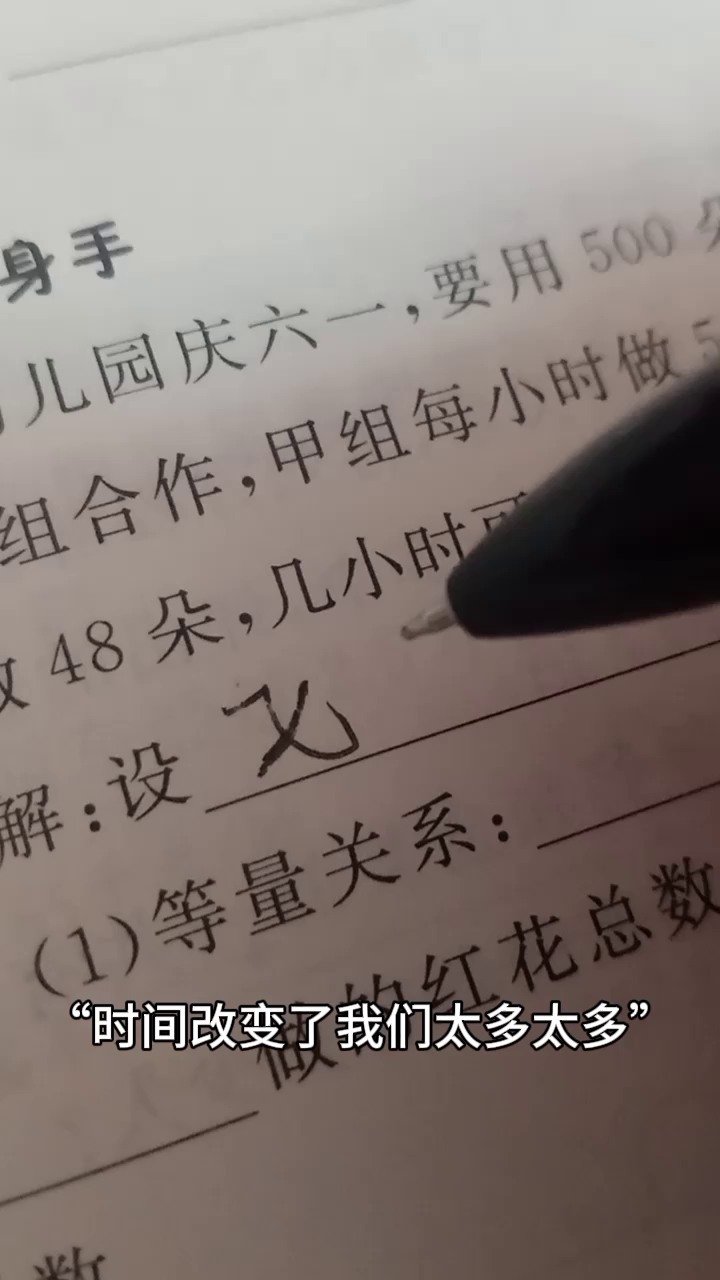 身手
儿园庆六一,要用 500
组合作,甲组每小时做 5
48 朵,几小时
解:设 x
(1)等量关系:
做的红花总数
“时间改变了我们太多太多”
数